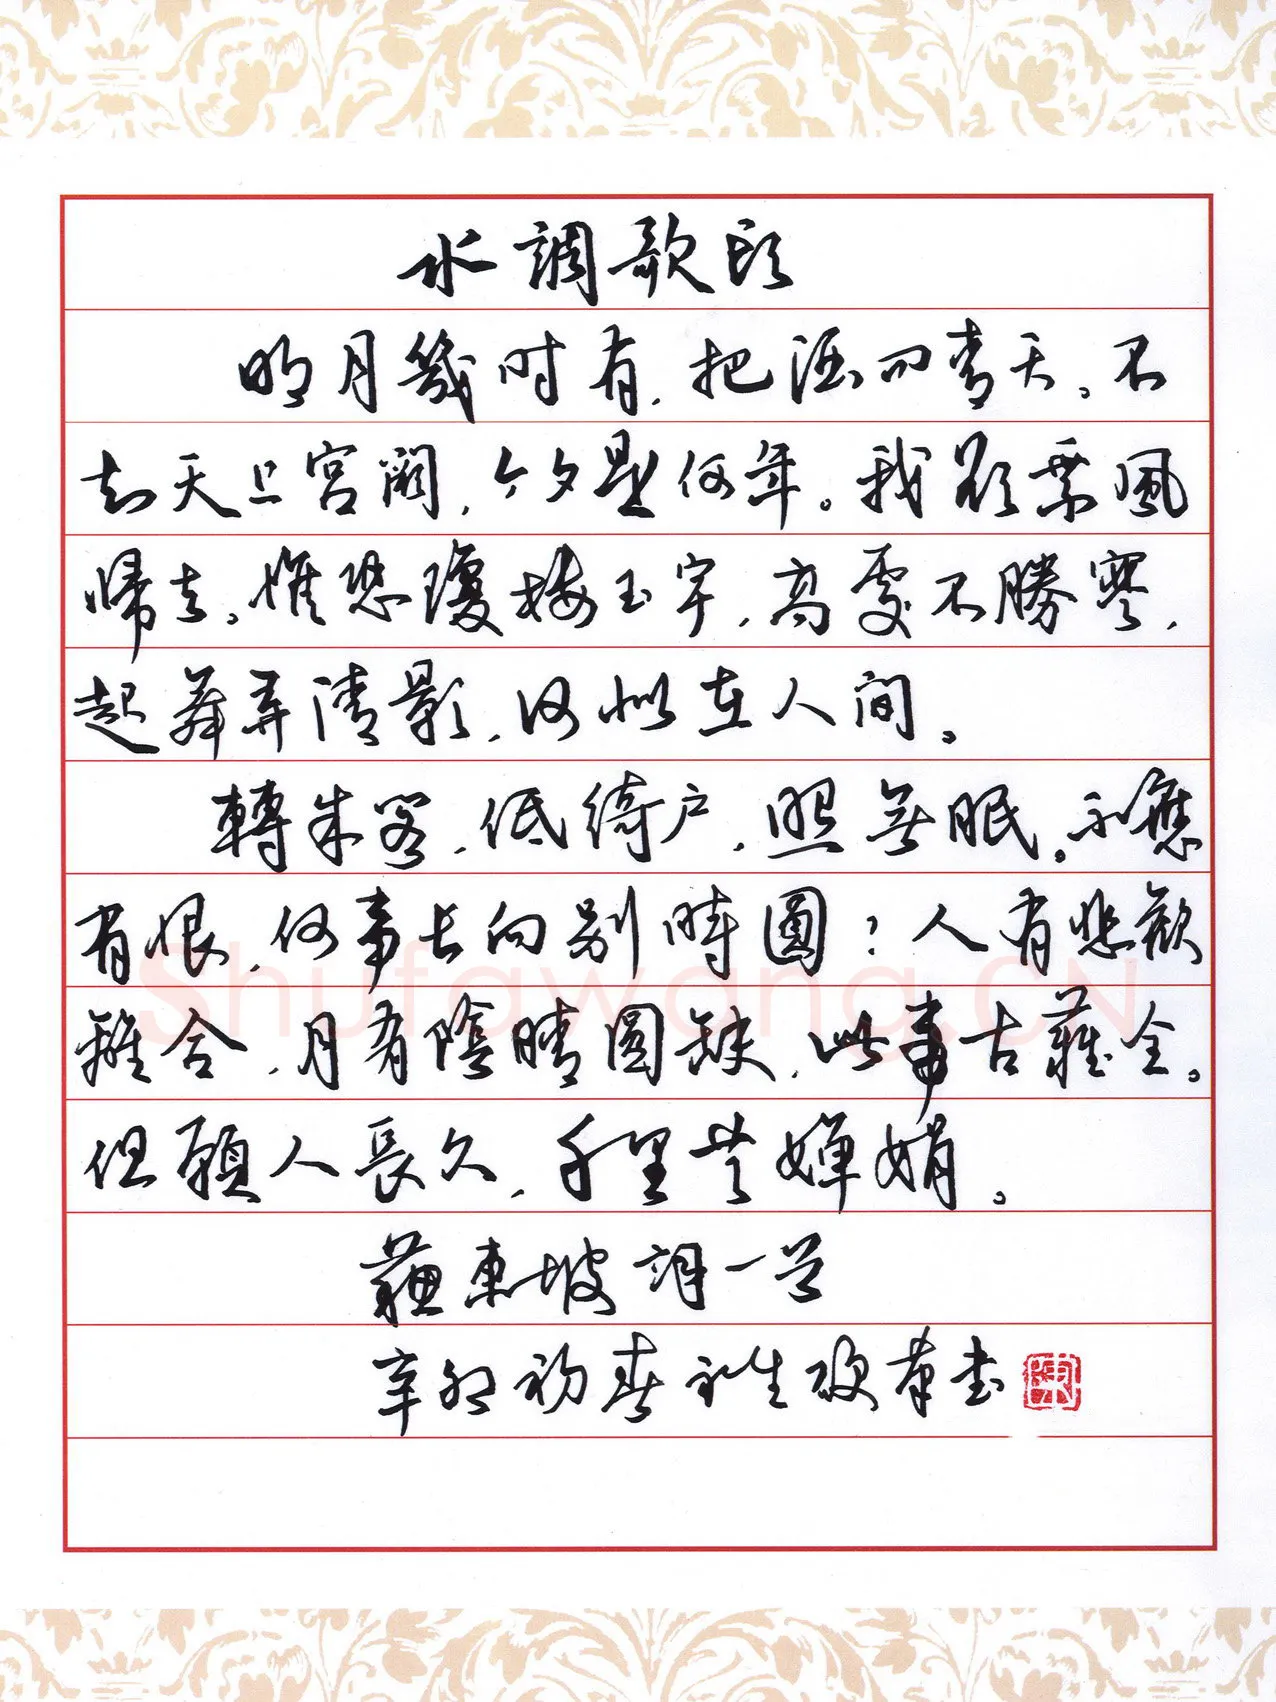 水調歌頭
明月幾時有，把酒問青天。不
知天上宮闕，今夕是何年。我欲乘風
歸去。惟恐瓊樓玉宇，高處不勝寒，
起舞弄清影，何似在人間。
轉朱閣，低綺户，照無眠。不應
有恨，何事长向别時圓？人有悲歡
離合，月有陰晴圓缺，此事古難全。
但願人長久，千里共嬋娟。
蘇東坡詞一首
辛卯初春 書
Shufawang.CN